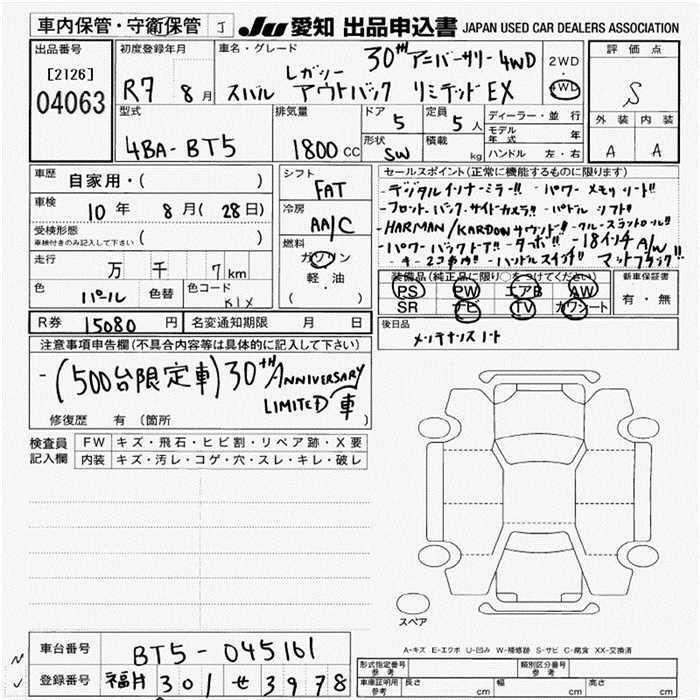 車内保管・守衛保管 J JU 愛知 出品申込書 JAPAN USED CAR DEALERS ASSOCIATION
出品番号 初度登録年月 車名・グレード 評価点
[2126] 30th アニバーサリー 4WD 2WD・4WD
04063 R7 8月 スバル レガシー アウトバック リミテッド EX S
外装 内装
A A
型式 排気量 ドア 定員 ディーラー・並行
4BA-BT5 1800CC 5 5人 モデル年式 年
形状 積載 ハンドル 左・右
SW kg
車歴 自家用・( ) シフト FAT セールスポイント(正常に機能するものに限ります)
車検 10年 8月(28日) 冷房 AA/C
- デジタルインナーミラー!! - パワーメモリシート!!
- フロント、バック、サイドカメラ!! - パドルシフト!!
- HARMAN/KARDONサウンド!! - クルーズコントロール!!
- パワーバックドア!! - ターボ!! - 18インチA/W
- キー2コ - ハンドルスイッチ!! マットブラック!!
受検形態
車検付きのみ記入して下さい ( )
燃料 ガソリン・軽・油
( )
走行 万 千 7km
色 パール 色替 色コード K1X
装備品(純正品に限り○をつけてください) 新車保証書
PS PW エアB AW 有・無
SR ナビ TV カワシート
R券 15080円 名変通知期限 月 日 後日品
メンテナンスノート
注意事項申告欄(不具合内容等は具体的に記入して下さい)
- (500台限定車) 30TH ANNIVERSARY
LIMITED 車
修復歴 有 (箇所 )
検査員記入欄 FW キズ・飛石・ヒビ割・リペア跡・X要
内装 キズ・汚レ・コゲ・穴・スレ・キレ・破レ
スペア
A-キズ E-エクボ U-凹み W-補修跡 S-サビ C-腐食 XX-交換済
車台番号 BT5-045161
登録番号 福井 301 せ 3978
形式指定番号 参考 類別区分番号 参考
車庫証明用 参考 長さ cm 幅 cm 高さ cm